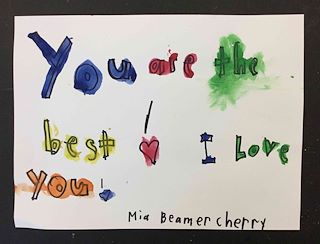 You are the
best! I Love
you!
Mia Beamer cherry